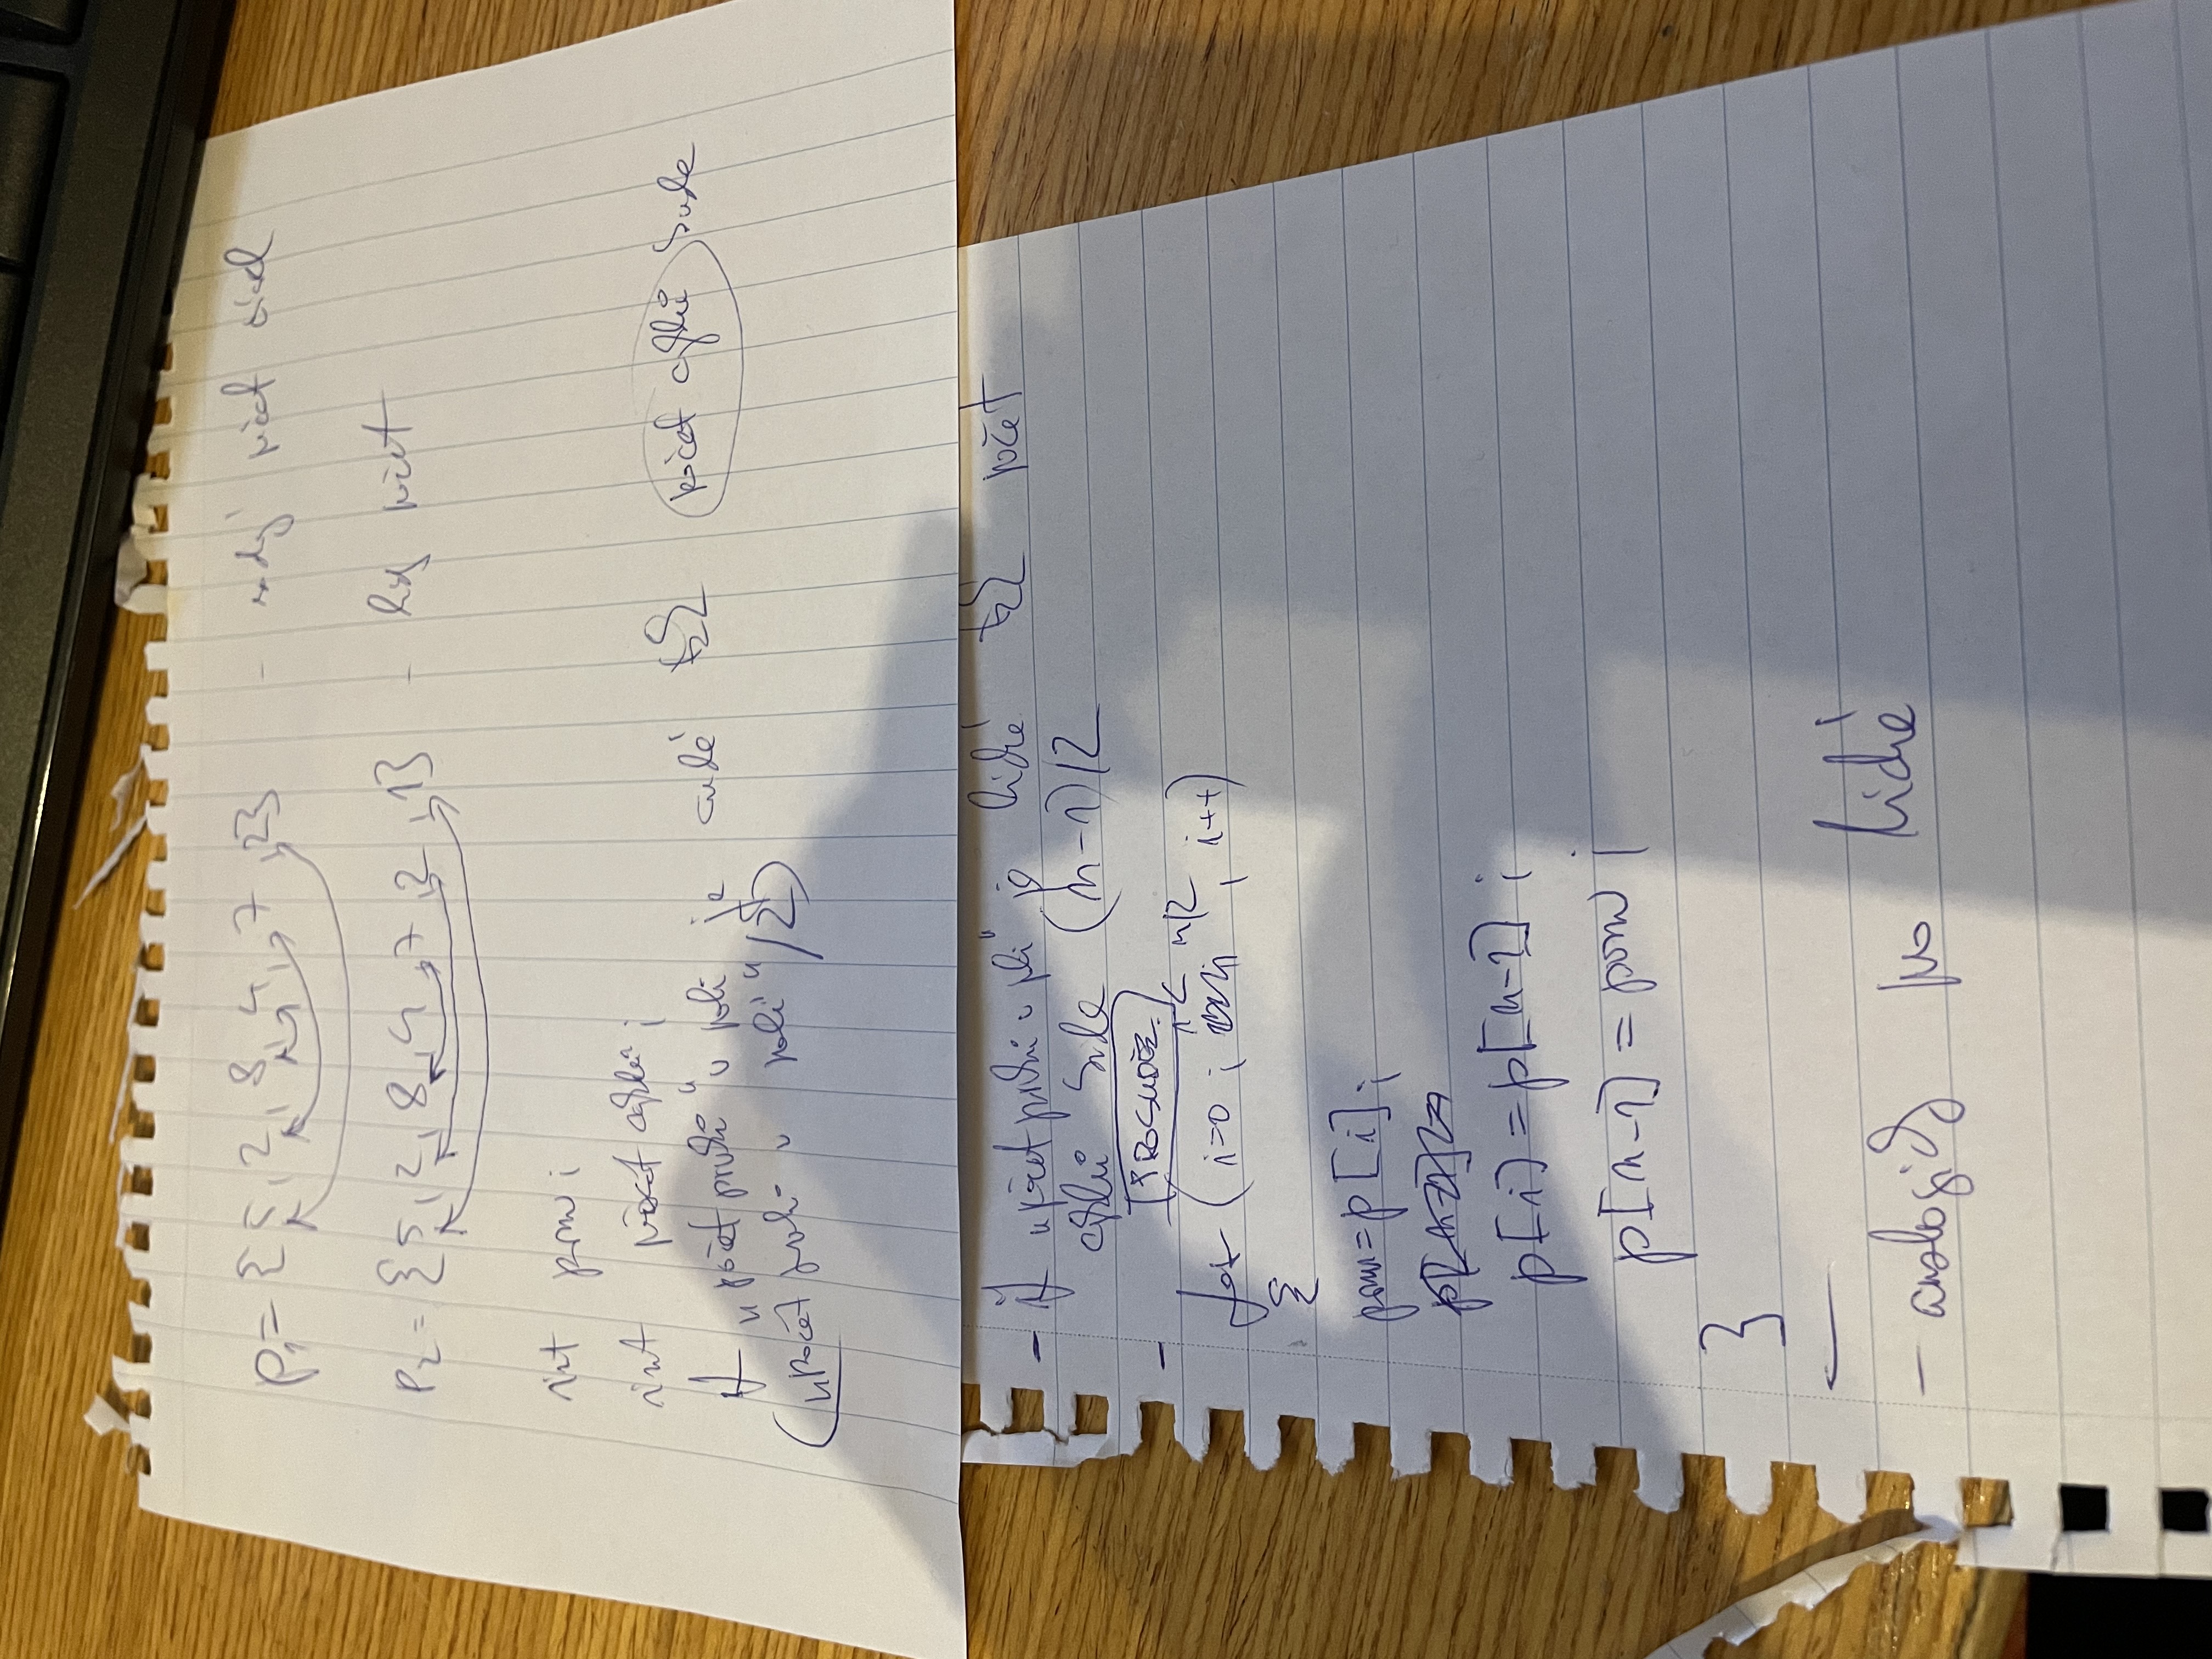 p₁ = {5, 2, 8, 4, 7, 2} - sudý počet čísel
p₂ = {5, 2, 8, 4, 7, 2, 1} - lichý počet
int pom;
int počet cyklů;
if "počet prvků" v poli je sudé tzn počet cyklů bude
("počet prvků v poli"/2)
- if "počet prvků v poli" je liché tzn počet
cyklů bude (n-1)/2
- PRO SUDÉ:
for (i=0; i< n/2, i++)
{
pom=p[i];
p[i]=p[n-1];
p[n-1]=pom;
}
- analogicky pro liché